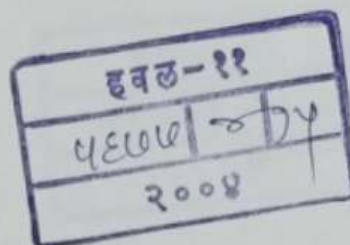 हवल-११
५६७७
२००४